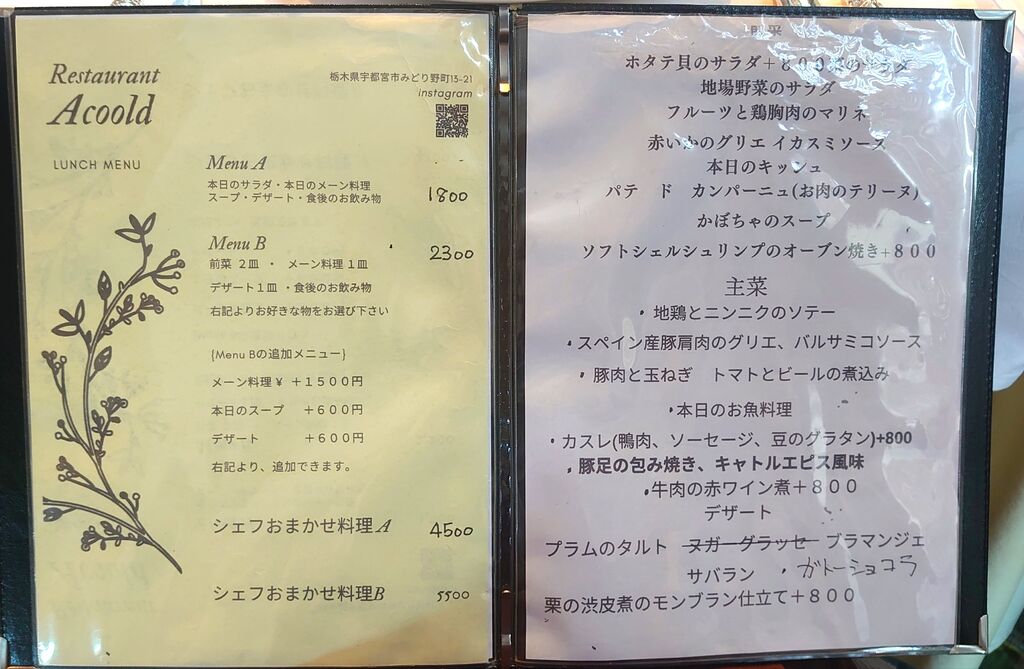 Restaurant
Acoold
栃木県宇都宮市みどり野町15-21
instagram
LUNCH MENU
Menu A
本日のサラダ・本日のメーン料理
スープ・デザート・食後のお飲み物
1800
Menu B
2300
前菜 2皿 ・ メーン料理 1皿
デザート1皿 ・食後のお飲み物
右記よりお好きな物をお選び下さい
{Menu Bの追加メニュー}
メーン料理¥ +1500円
本日のスープ +600円
デザート +600円
右記より、追加できます。
シェフおまかせ料理A
4500
シェフおまかせ料理B
5500
ホタテ貝のサラダ+800
地場野菜のサラダ
フルーツと鶏胸肉のマリネ
赤いかのグリエ イカスミソース
本日のキッシュ
パテ ド カンパーニュ(お肉のテリーヌ)
かぼちゃのスープ
ソフトシェルシュリンプのオーブン焼き+800
主菜
・地鶏とニンニクのソテー
・スペイン産豚肩肉のグリエ、バルサミコソース
・豚肉と玉ねぎ トマトとビールの煮込み
・本日のお魚料理
・カスレ(鴨肉、ソーセージ、豆のグラタン)+800
・豚足の包み焼き、キャトルエピス風味
・牛肉の赤ワイン煮+800
デザート
プラムのタルト ヌガーグラッセ ブラマンジェ
サバラン ・ガトーショコラ
栗の渋皮煮のモンブラン仕立て+800